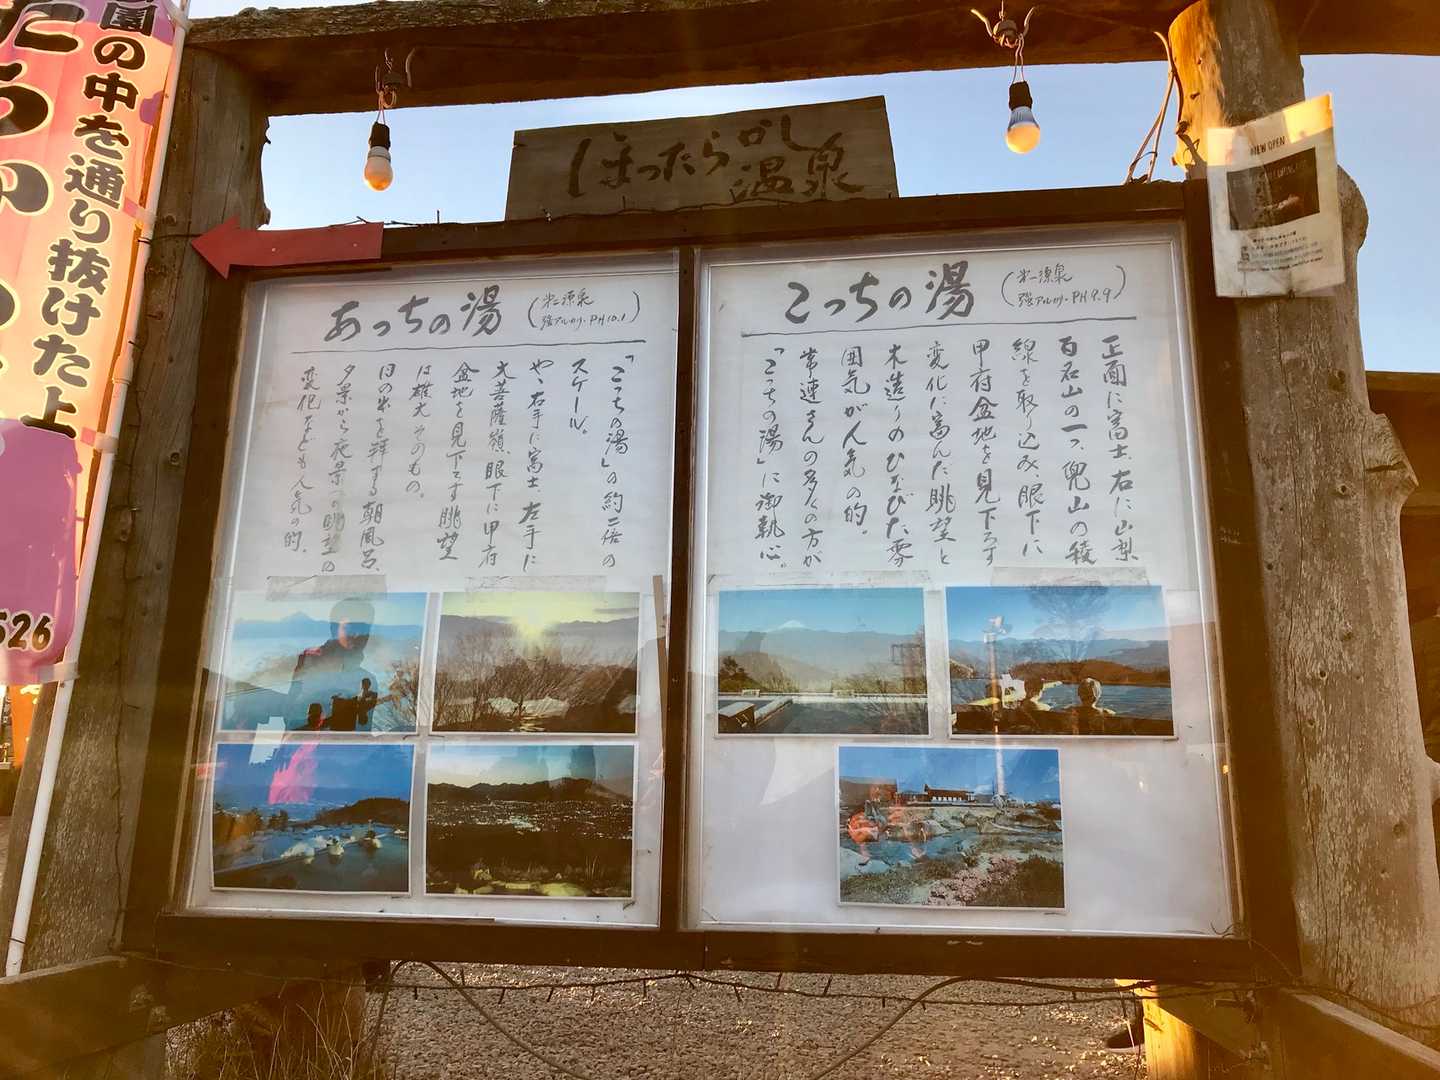 園の中を通り抜けた上
526
ほったらかし
温泉
NEW OPEN
あっちの湯
(第二源泉
強アルカリ・PH10.1)
「こっちの湯」の約二倍の
スケール。
やや右手に富士、左手に
大菩薩嶺、眼下に甲府
盆地を見下ろす眺望
は雄大そのもの。
日の出を拝する朝風呂、
夕景から夜景への眺望の
変化なども人気の的。
こっちの湯
(第一源泉
強アルカリ・PH9.9)
正面に富士、右に山梨
百名山の一つ、兜山の稜
線を取り込み、眼下に
甲府盆地を見下ろす
変化に富んだ眺望と
木造りのひなびた雰
囲気が人気の的。
常連さんの多くの方が
「こっちの湯」に御執心。